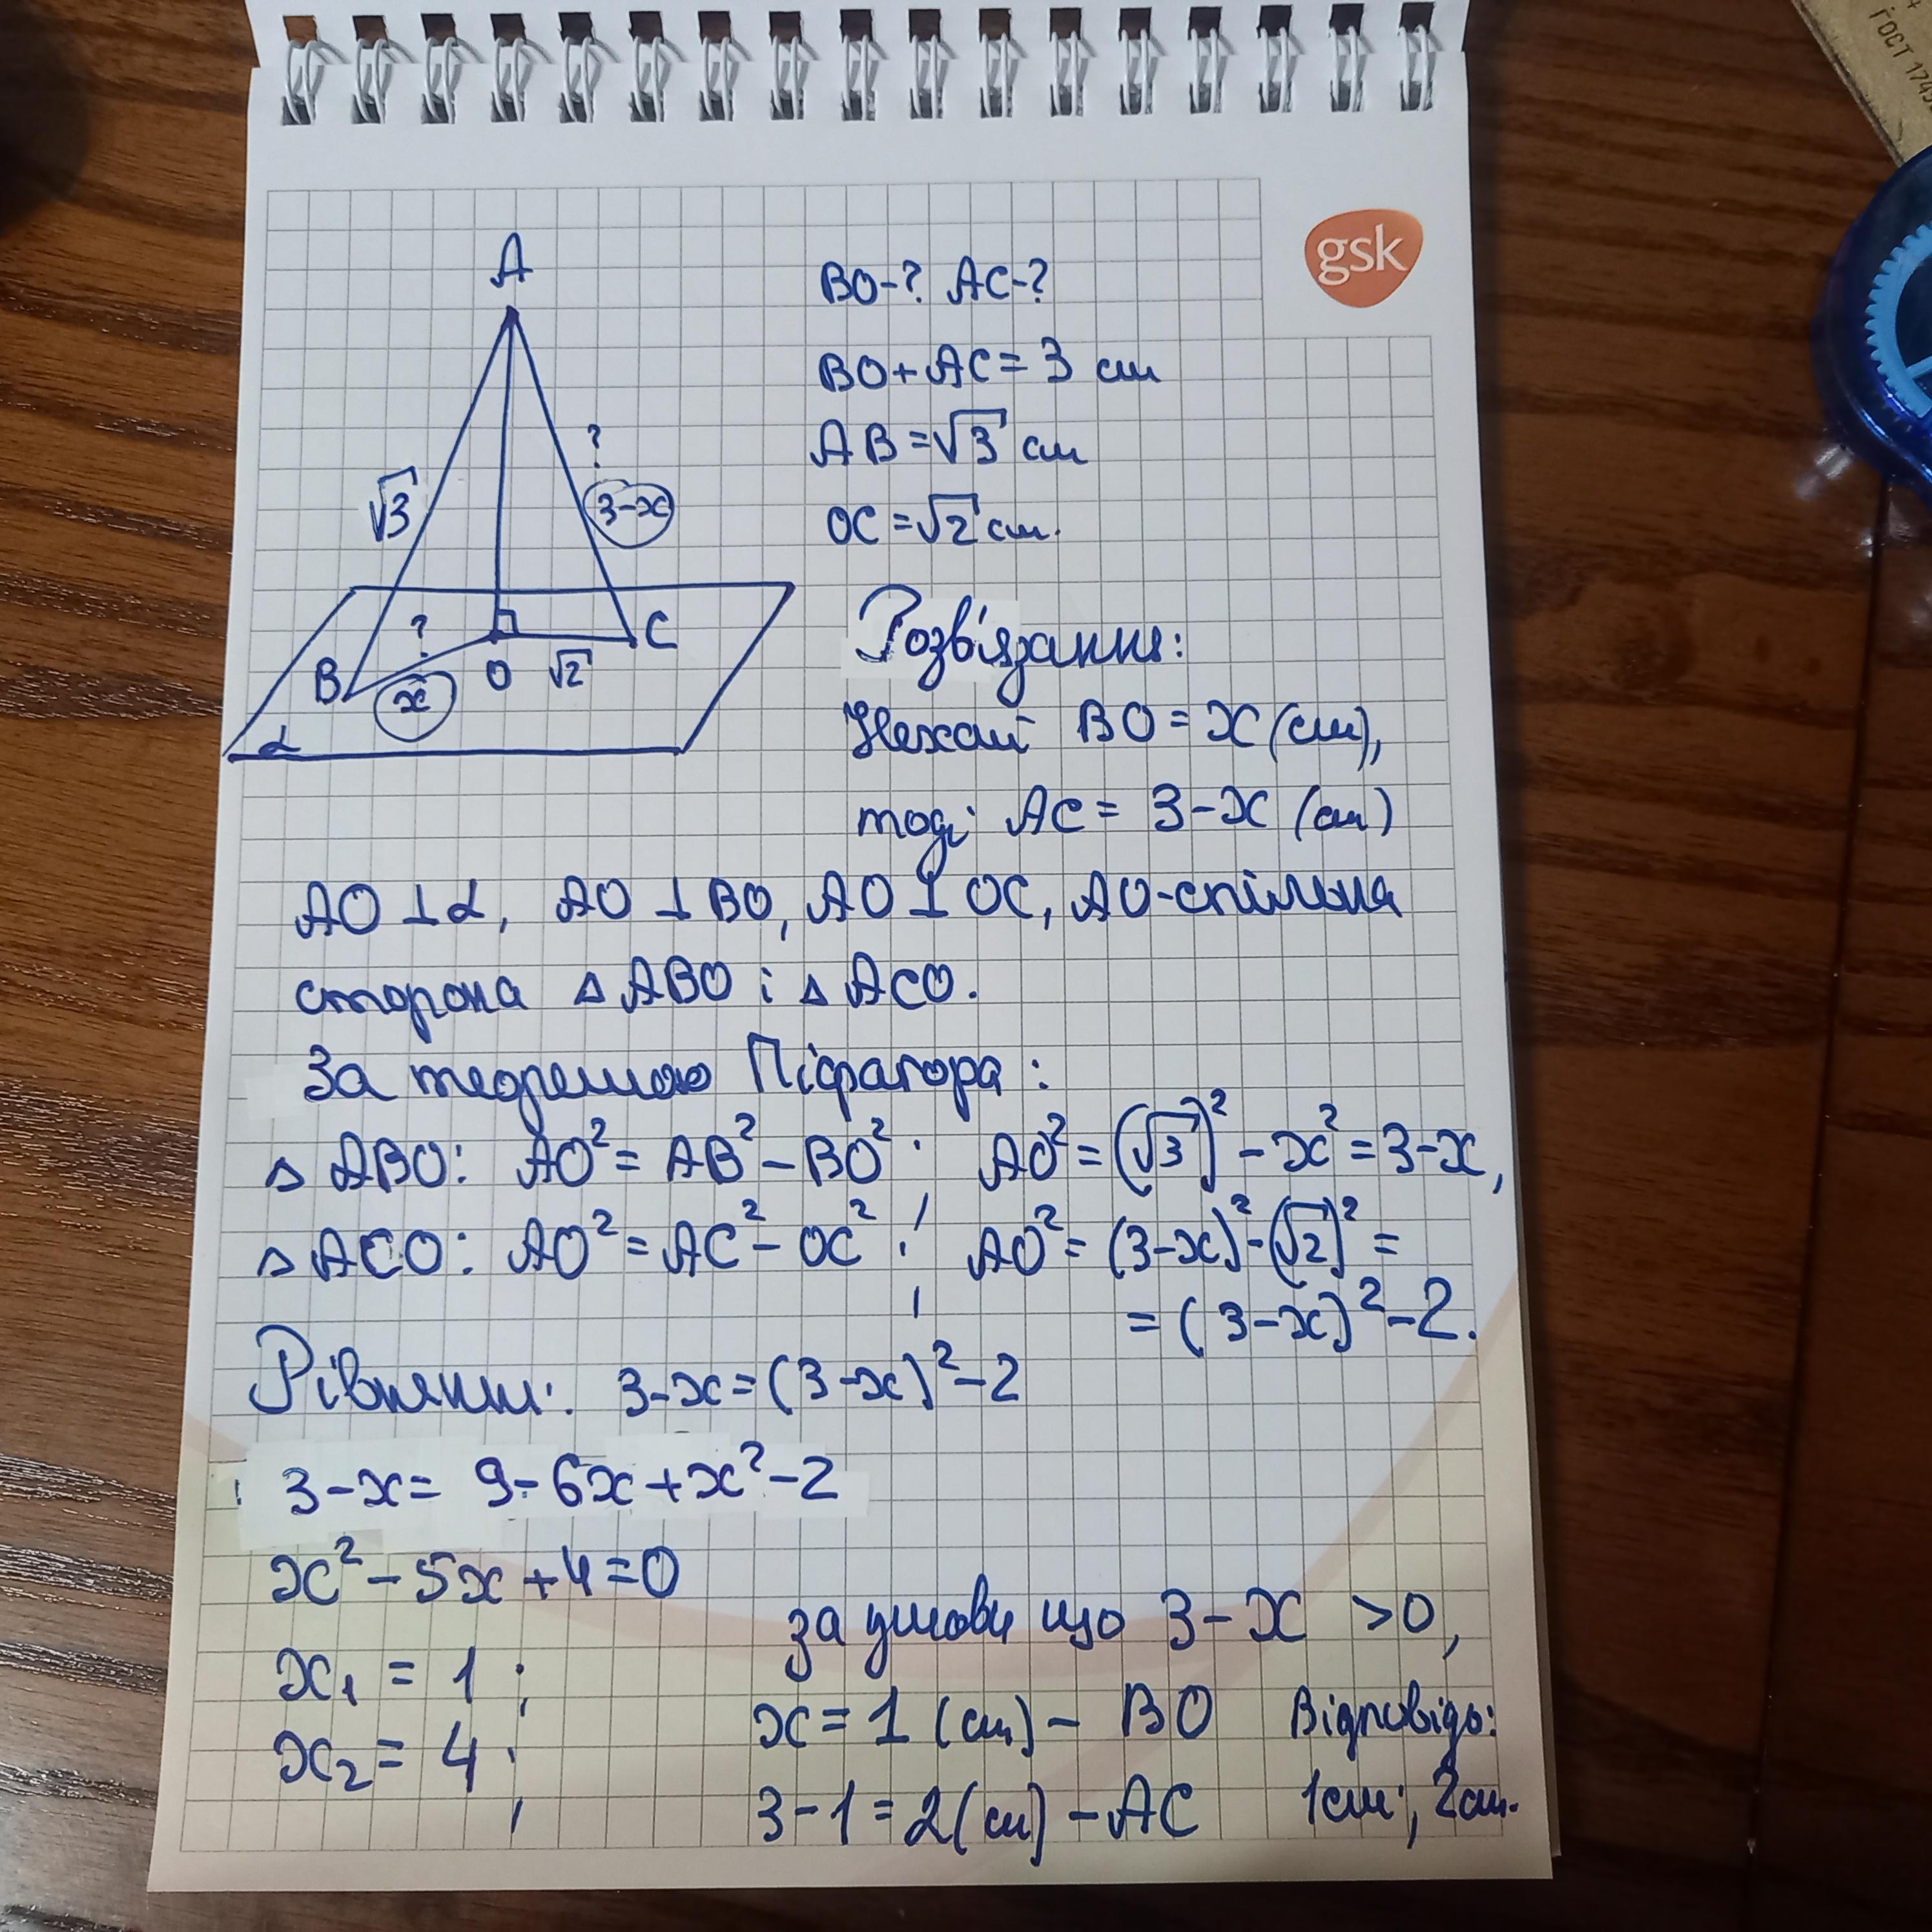 ГОСТ 1745
gsk
A
BO-? AC-?
BO+AC=3 см
AB=√3 см
OC=√2 см.
√3
?
3-x
?
B
x
O
√2
C
α
Розв'язання:
Нехай BO=x(см),
тоді AC=3-x (см)
AO⊥α, AO⊥BO, AO⊥OC, AO-спільна
сторона △ABO і △ACO.
За теоремою Піфагора:
△ABO: AO²=AB²-BO²; AO²=(√3)²-x²=3-x,
△ACO: AO²=AC²-OC²; AO²=(3-x)²-(√2)²=
=(3-x)²-2.
Рівняння: 3-x=(3-x)²-2
3-x=9-6x+x²-2
x²-5x+4=0
x₁=1;
x₂=4;
за умови що 3-x >0,
x=1(см)-BO
3-1=2(см)-AC
Відповідь:
1см; 2см.